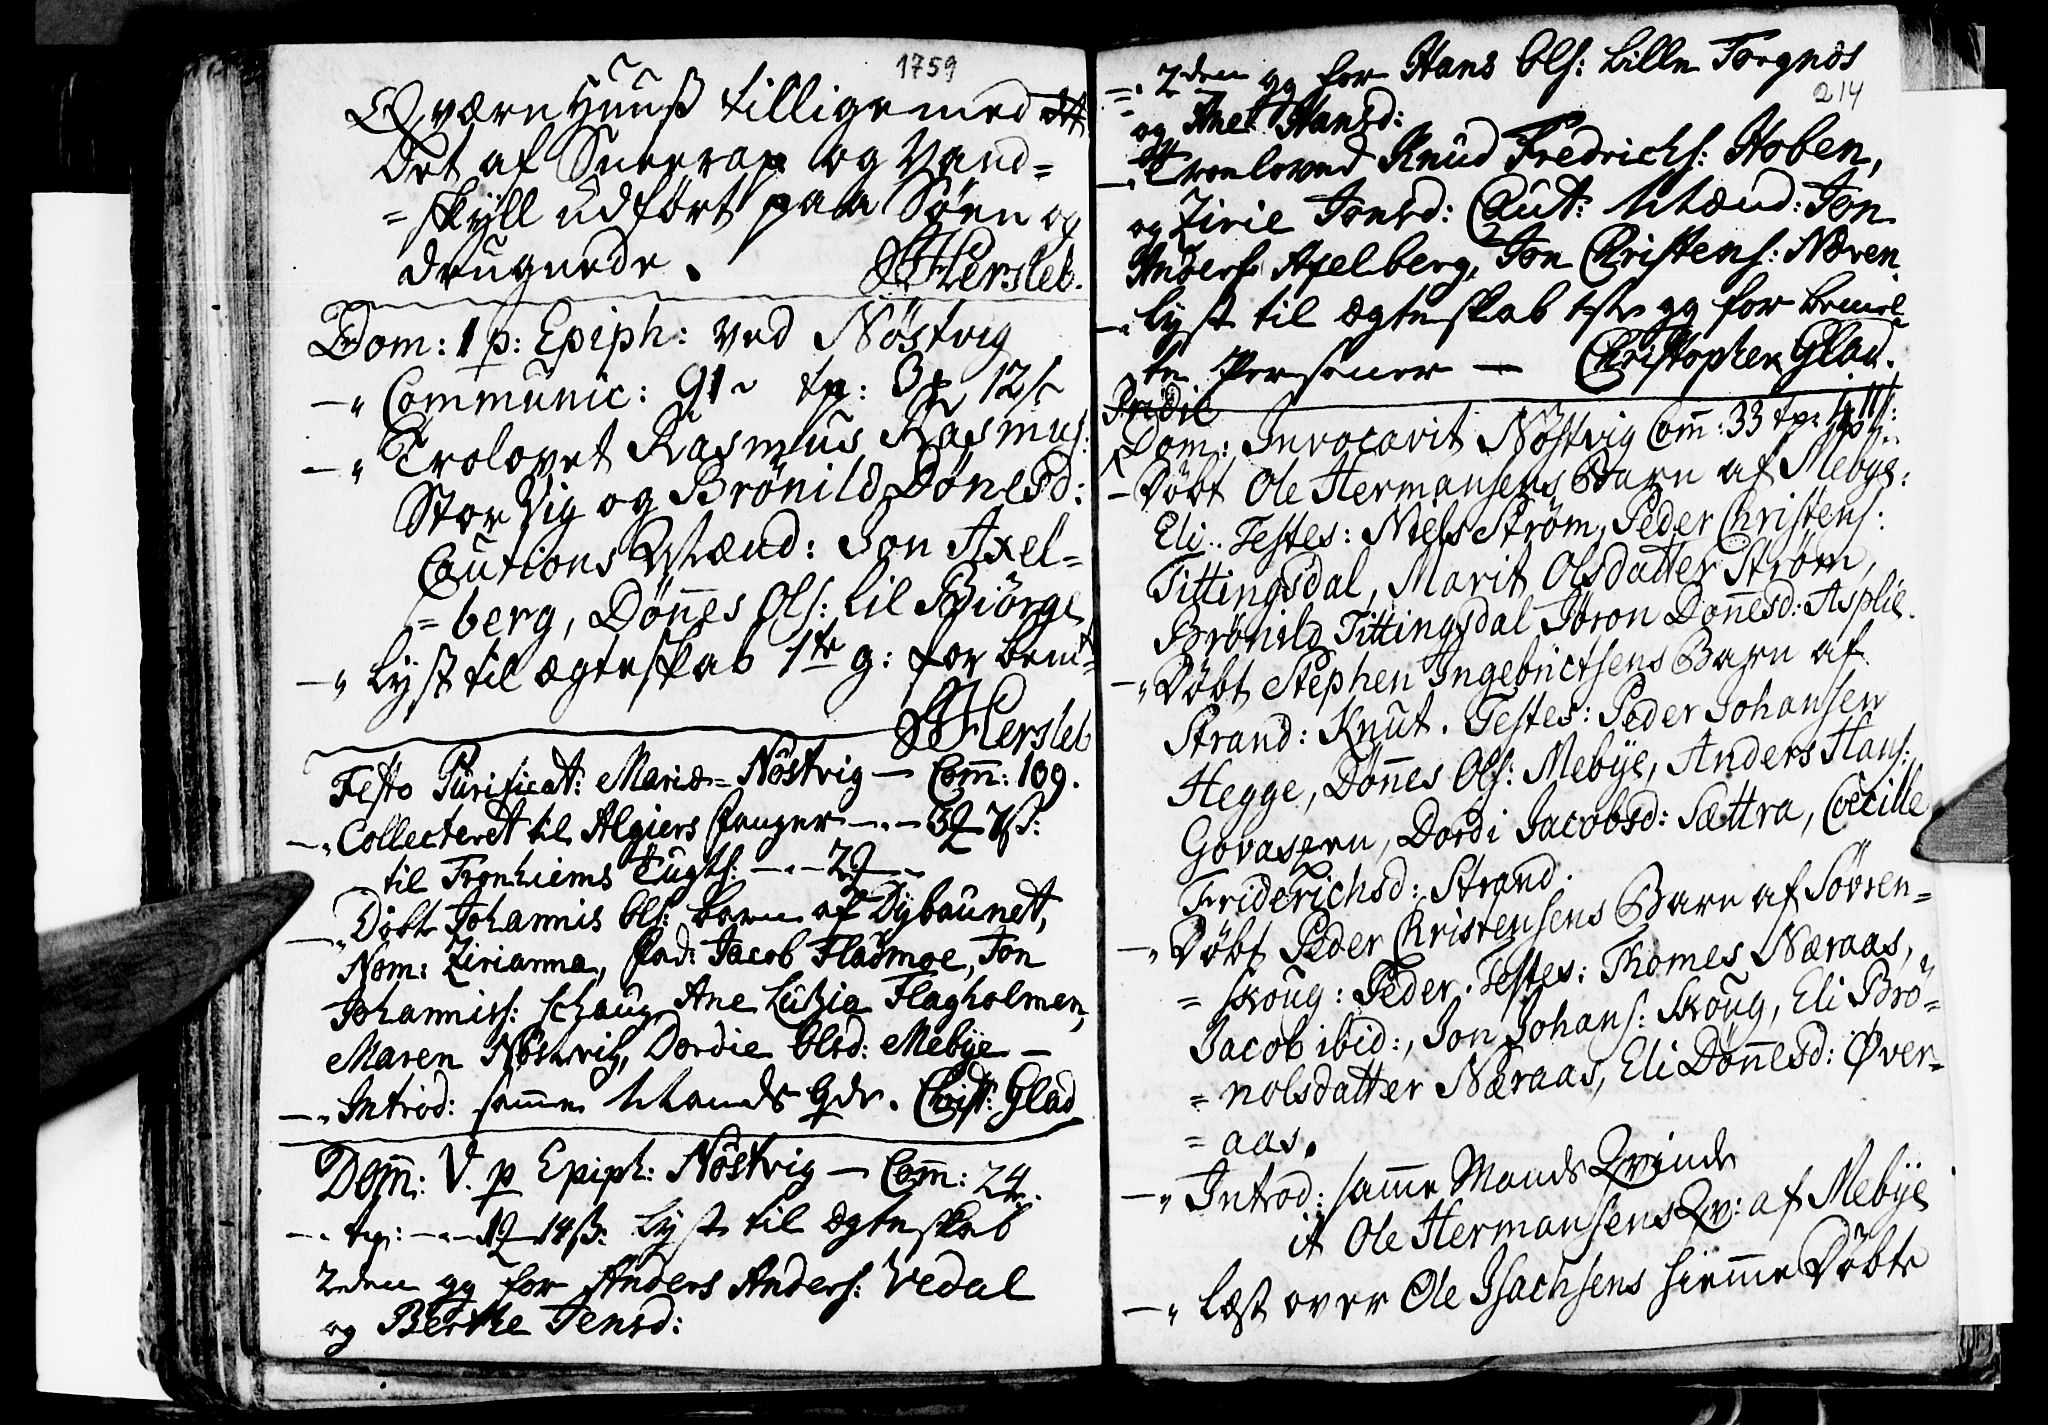 1759
Qværn Huuß tilligemed
det af Sneerap og Vand=
=skyll udført paa Søen og
drugnede. SHersleb.
Dom: 1 p: Epiph: ved Nöstvig
—" Communic: 91 ~ tp: 3 12 ß
—" Trolovet Rasmus Rasmus:
Stor Vig og Brönild Dönesd:
Cautions Mænd: Jon Axel=
=berg, Döñes Ols: Lil Biörge
—" Lyst til ægteskab 1te g: for bem:
SHersleb
Festo Purificat: Mariæ= Nöstvig — Com̃: 109.
—" Collecteret til Algiers Fanger —"— 3 7 ß:
til Tronhiems Tugth: —"— 2
—" Döbt Johannis Ols: barn af Dybaunett,
Nom: Zirianna, Fad: Jacob Fladmoe, Jon
Johanniss: Schaug Ane Lutzia Flagholmen,
Maren Nöstvig, Dordie Olsd: Mebÿe —
—" Introd: sam̃e Mands Qde. Christ: Glad
Dom̃: V. p Epiph: Nöstvig — Com̃: 24.
—" tp: —"— 1 14 ß: Lyst til Ægteskab
2den gg for Anders Anders: Vedal
og Berthe Jensd:
214
—" 2den gg for Hans Ols: Lille Torgnös
og Ane Hansd:
—" Troeloved Knud Fredrichs: Hoben,
og Zirie Jonsd: Caut: Mænd: Jon
Anders: Axelberg, Jon Christens: Næren.
—" Lyst til Ægteskab 1ste gg for bemel
te Personer — Christopher Glad.
Dom: Invocavit Nöstvig Com̃: 33 tp:
—" Döbt Ole Hermansens Barn af Mebÿe:
Eli.. Testes: Niels Ström, Peder Christens:
Tittingsdal, Marit Olsdatter Ström,
Brönild Tittingsdal Jöron Doñesd: Asplie.
—" Döbt Stephen Ingebrictsens Barn af
Strand: Knut. Testes: Peder Johansen
Hegge, Döñes Ols: Mebÿe, Anders Hans:
Govasen, Dordi Jacobsd: Sættra, Cecille
Friderichsd: Strand.
—" Döbt Peder Christensens Barn af Sövren=
=skoug: Peder. Testes: Thomes Næraas,
Jacob ibid:, Jon Johans: Skoug, Eli Brö=
=nolsdatter Næraas, Eli Döñesd: Øver=
=aas.
—" Introd: sam̃e Mands Qvinde
it Ole Hermansens Qv: af Mebÿe
—" Læst over Ole Isachsens hiem̃e Döbte